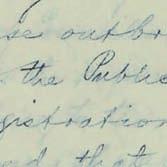 se outbr
the Public
gistration
d that